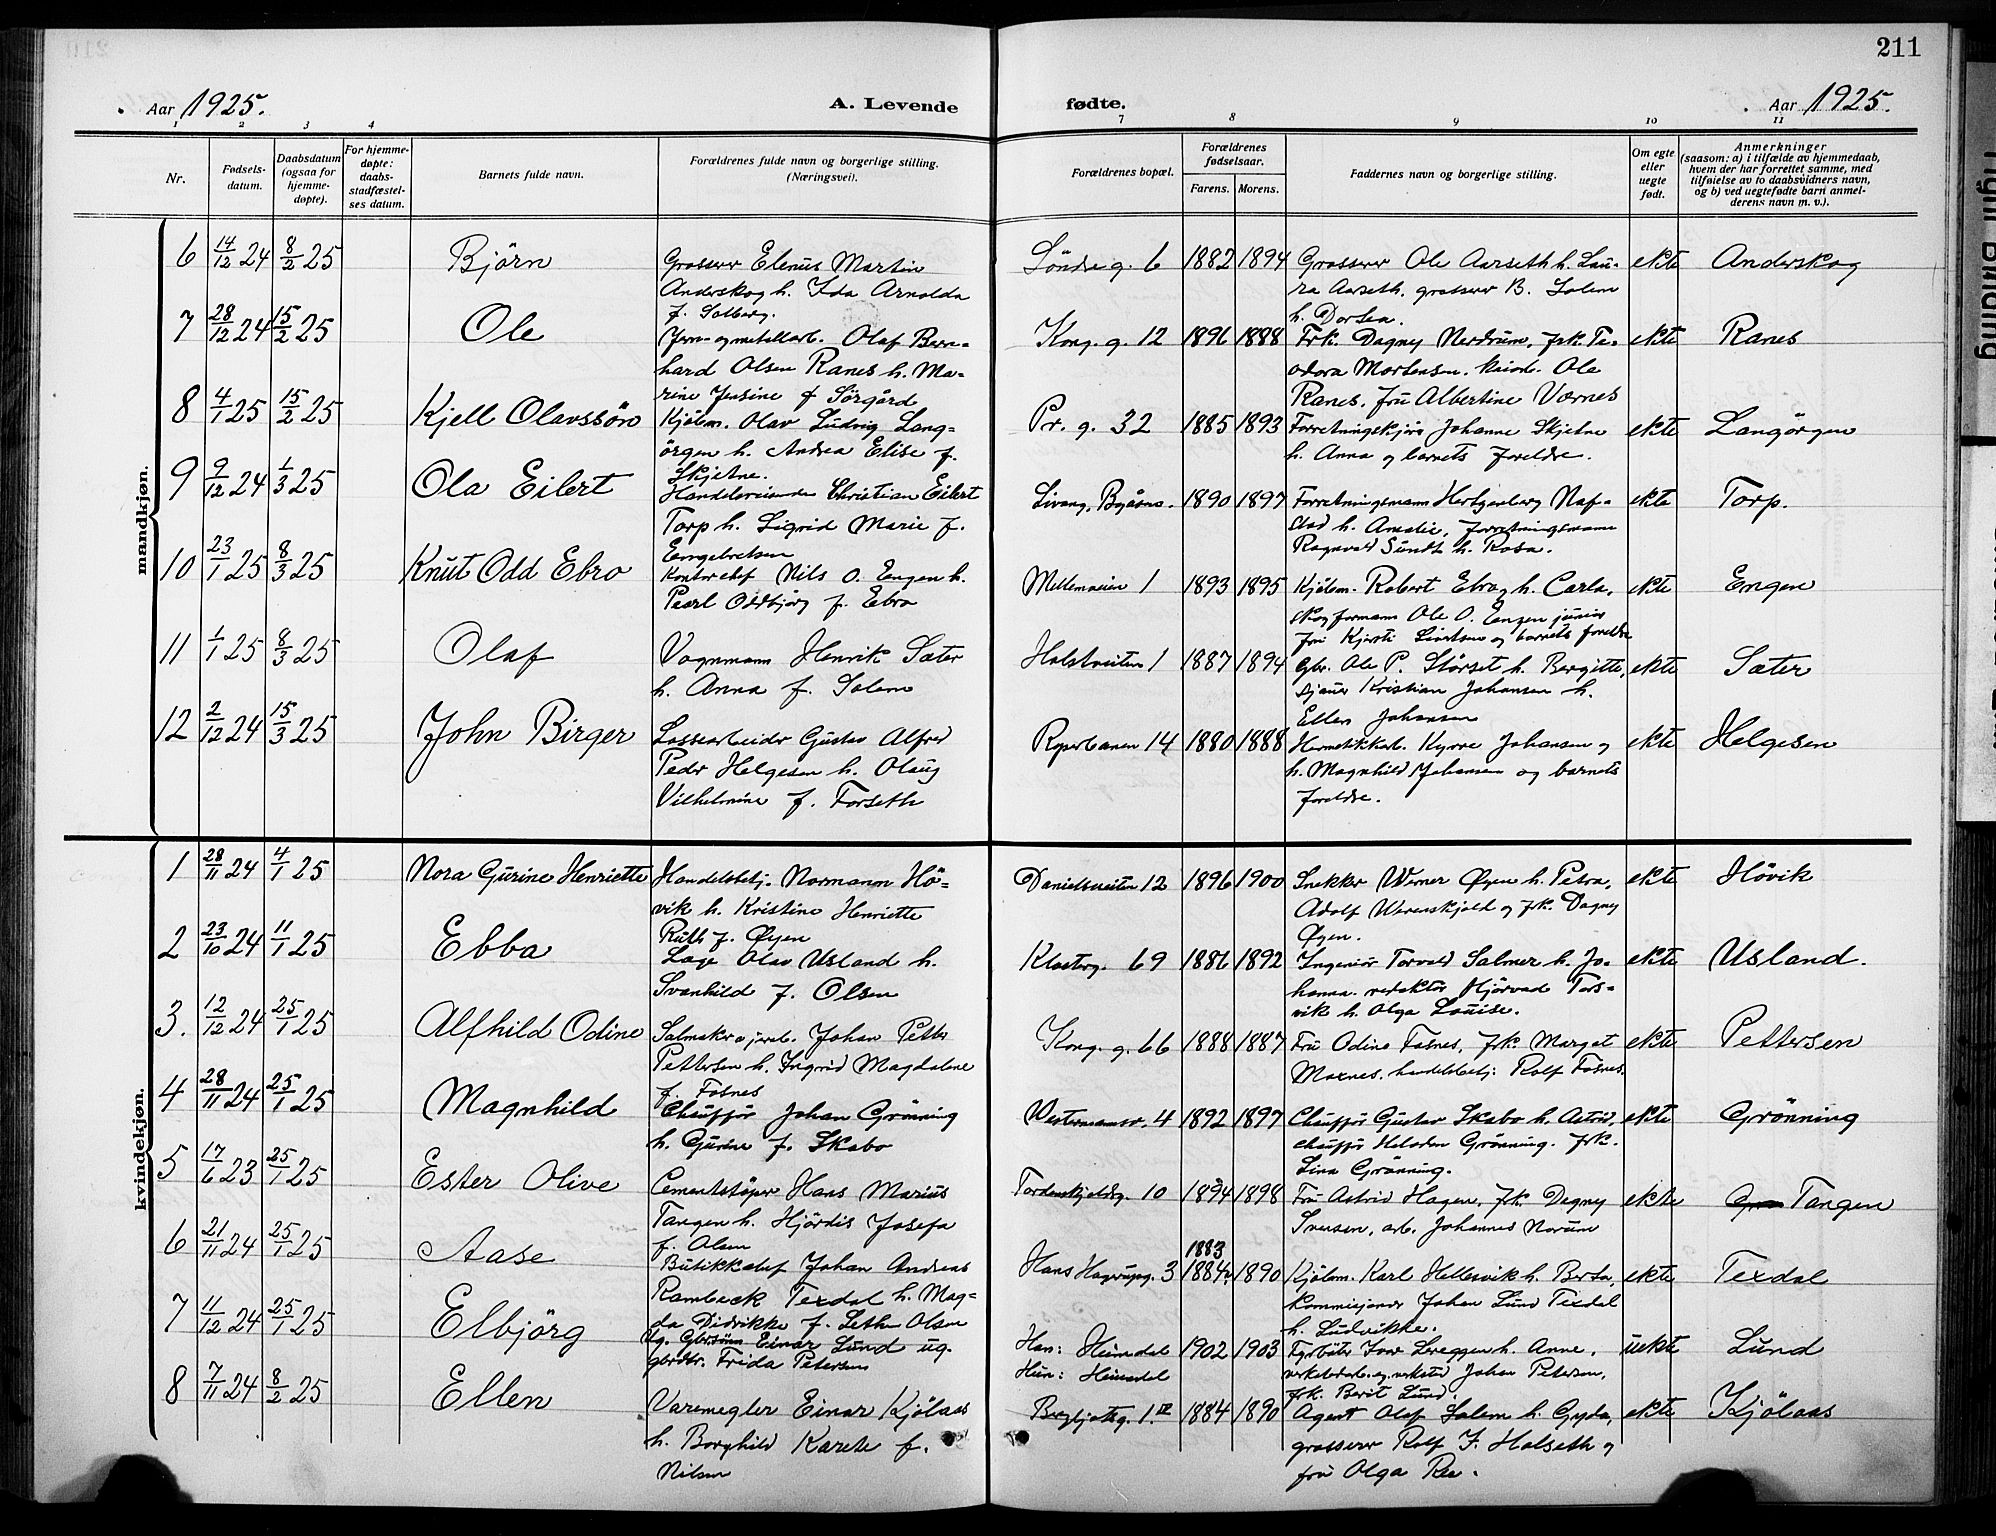 211
Aar 1925. A. Levende fødte. Aar 1925.
1 2 3 4 7 8 9 10 11
Nr.
Fødsels-
datum.
Daabsdatum
(ogsaa for
hjemme-
døpte).
For hjemme-
døpte:
daabs-
stadfæstel-
ses datum.
Barnets fulde navn.
Forældrenes fulde navn og borgerlige stilling.
(Næringsvei).
Forældrenes bopæl.
Forældrenes
fødselsaar.
Farens. Morens.
Faddernes navn og borgerlige stilling.
Om egte
eller
uegte
født.
Anmerkninger
(saasom: a) i tilfælde av hjemmedaab,
hvem der har forrettet samme, med
tilføielse av to daabsvidners navn,
og b) ved uegtefødte barn anmel-
derens navn m. v.).
mandkjøn.
6 14/12 24 8/2 25 Björn
Grosserer Elenus Martin
Anderskog h. Ida Arnolda
f. Solberg.
Söndreg. 6 1882 1894
Grosserer Ole Aarseth h. Lau-
ra Aarseth, grosserer B. Solem
h. Dorthea.
ekte Anderskog
7 28/12 24 15/2 25 Ole
Jern- og metallarb. Olaf Bern-
hard Olsen Ranes h. Ma-
rine Jensine f Sörgård
Kong. g. 12 1896 1888
Frk. Dagny Nerdrum, frk. Te-
odora Mortensen. Ole
Ranes, fru Albertine Værnes
ekte Ranes
8 4/1 25 15/2 25 Kjell Olavssön
Kjöbm. Olav Ludvig Lang-
örgen h. Andrea Elise f.
Skjetne.
Pr. g. 32 1885 1893
Johanne Skjetne
h. Anna og barnets foreldre.
ekte Langörgen
9 9/12 24 1/3 25 Ola Eilert
Handelsreisende Christian Eilert
Torp h. Sigrid Marie f.
Engebretsen
Byåsen. 1890 1897
Forretningsmann Naf-
stad h. Amalie, forretningsmann
Ragnvald Sundt h. Rosa.
ekte Torp.
10 23/1 25 8/3 25 Knut Odd Ebro
Kontorchef Nils O. Engen h.
Pearl Oddbjörg f. Ebro
Mellemveien 1 1893 1895
Kjöbm. Robert Ebro h. Carla,
skogformann Ole O. Engen junior
fru Kjersti Sivertsen og barnets foreldre
ekte Engen
11 1/1 25 8/3 25 Olaf
Vognmann Henrik Sæter
h. Anna f. Solem
Holstveiten 1 1887 1894
Gbr. Ole P. Störset h. Bergitte,
sjauer Kristian Johansen h.
Ellen Johansen
ekte Sæter
12 2/12 24 15/3 25 John Birger
Lossearbeider Gustav Alfred
Peder Helgesen h. Olaug
Vilhelmine f. Forseth
Reperbanen 14 1880 1888
Hermetikkarb. Kyrre Johansen og
h. Magnhild Johansen og barnets
foreldre.
ekte Helgesen
kvindekjøn.
1 28/11 24 4/1 25 Nora Gurine Henriette
Handelsbetj. Normann Hö-
vik h. Kristine Henriette
Ruth f. Öyen
Danielsveiten 12 1896 1900
Snekker Werner Öyen h. Petra,
Adolf Werenskjold og frk. Dagny
Öyen.
ekte Hövik
2 23/10 24 11/1 25 Ebba
Læge Olav Usland h.
Svanhild f. Olsen
Klosterg. 69 1886 1892
Ingeniör Torvald Salmer h. Jo-
hanna. redaktör Hjörvad Tors-
vik h. Olga Louise.
ekte Usland.
3. 12/12 24 25/1 25 Alfhild Odine
Salmaker Johan Petter
Pettersen h. Ingrid Magdalene
f. Fosnes
Kong. g. 66 1888 1887
Fru Odine Fosnes, frk. Margot
Moxnes. handelsbetj: Rolf Fosnes
ekte Pettersen
4 28/11 24 25/1 25 Magnhild
Chaufför Johan Grönning
h. Gurine f. Skabo
Westermannsv. 4 1892 1897
Chaufför Gustav Skabo h. Astrid,
chaufför Halvdan Grönning. frk.
Lina Grönning.
ekte Grönning
5 17/6 23 25/1 25 Ester Olive
Cementstöper Hans Marius
Tangen h. Hjördis Josefa
f. Olsen
Tordenskjoldsg. 10 1894 1898
Fru Astrid Hagen, frk. Dagny
Iversen, arb. Johannes Norum
ekte Tangen
6 21/11 24 25/1 25 Aase
Butikkchef Johan Andreas
Rambeck Texdal h. Mag-
da Didrikke f. Lethe Olsen
Hans Hagerupsg. 3 1883 1884 1890
Kjöbm. Karl Hellesvik h. Berta,
kommisjonær Johan Lund Texdal
h. Ludvikke.
ekte Texdal
7 11/12 24 25/1 25 Elbjörg
Ug. Gbrsönn Einar Lund ug.
gbrdtr. Frida Petersen
Han: Heimdal
Hun: Heimdal
1902 1903
Fyrböter Ivar Lereggen h. Anne,
verkstedarb. Johan Petersen,
frk. Berit Lund.
uekte Lund
8 7/11 24 8/2 25 Ellen
Varemegler Einar Kjölaas
h. Borghild Karete f.
Nilsen
Bergljotsg. 1.IV 1884 1890
Agent Olaf Solem h. Gyda,
grosserer Rolf F. Halseth og
fru Olga Ree.
ekte Kjölaas